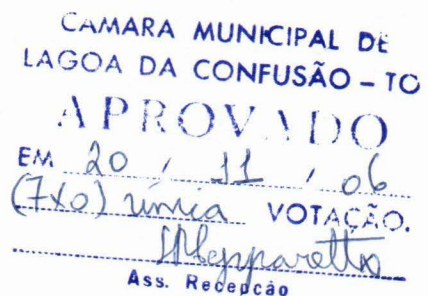 CAMARA MUNICIPAL DE
LAGOA DA CONFUSÃO – TO
APROVADO
EM 20 / 11 / 06
(7x0) única VOTAÇÃO.
Ass. Recepção